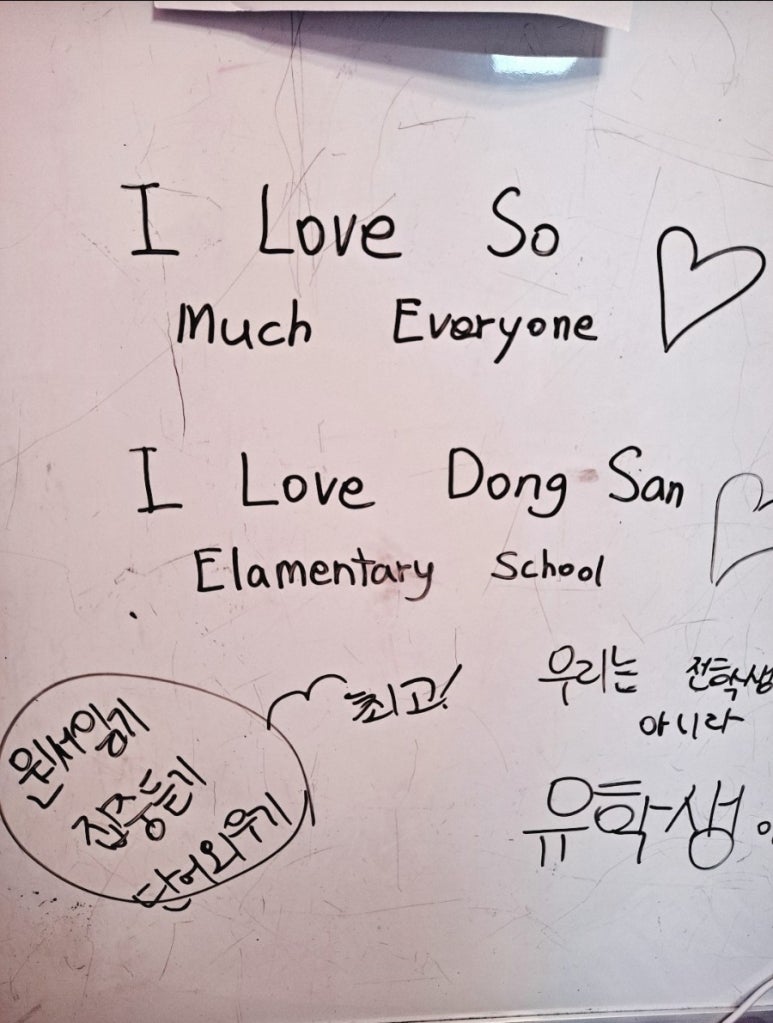 I Love So
Much Everyone
I Love Dong San
Elamentary School
최고!
우리는 전학생
아니라
유학생
원서읽기
집중듣기
단어외우기